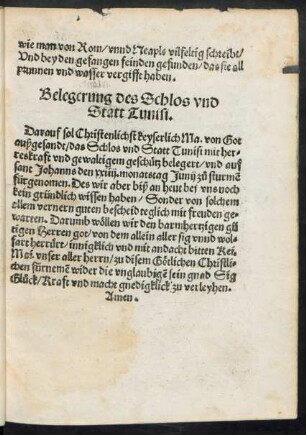 wie man von Rom/ vnnd Neapls vilfeltig schreibt/
Vnd bey den gefangen feinden gefunden/ das sie all
prunnen vnd wasser vergifft haben.
Belegerung des Schlos vnd
Statt Tunisi.
Darauf sol Christenlichst keyserlich Ma. von Got
außgesandt/ das Schlos vnd Statt Tunisi mit her
reskraft vnd gewaltigem geschütz belegert/ vnd auf
sant Johanns den xxiiij. monatstag Junij zů stürmē
fürgenomen. Des wir aber biß an heut bey vns noch
kein gründlich wissen haben/ Sonder von solchem
ellern vernern guten bescheid teglich mit freuden ge-
warten. Darumb wöllen wir den barmhertzigen gü
tigen Herren got/ von dem allein aller sig vnnd wol-
fart herrürt/ innigklich vnd mit andacht bitten Kei.
Mai. vnser aller herrn/ zu disem Götlichen Christli-
chen fürnemē wider die vnglaubigē sein gnad Sig
Glück/ Kraft vnd macht gnedigklich zu verleyhen.
Amen.